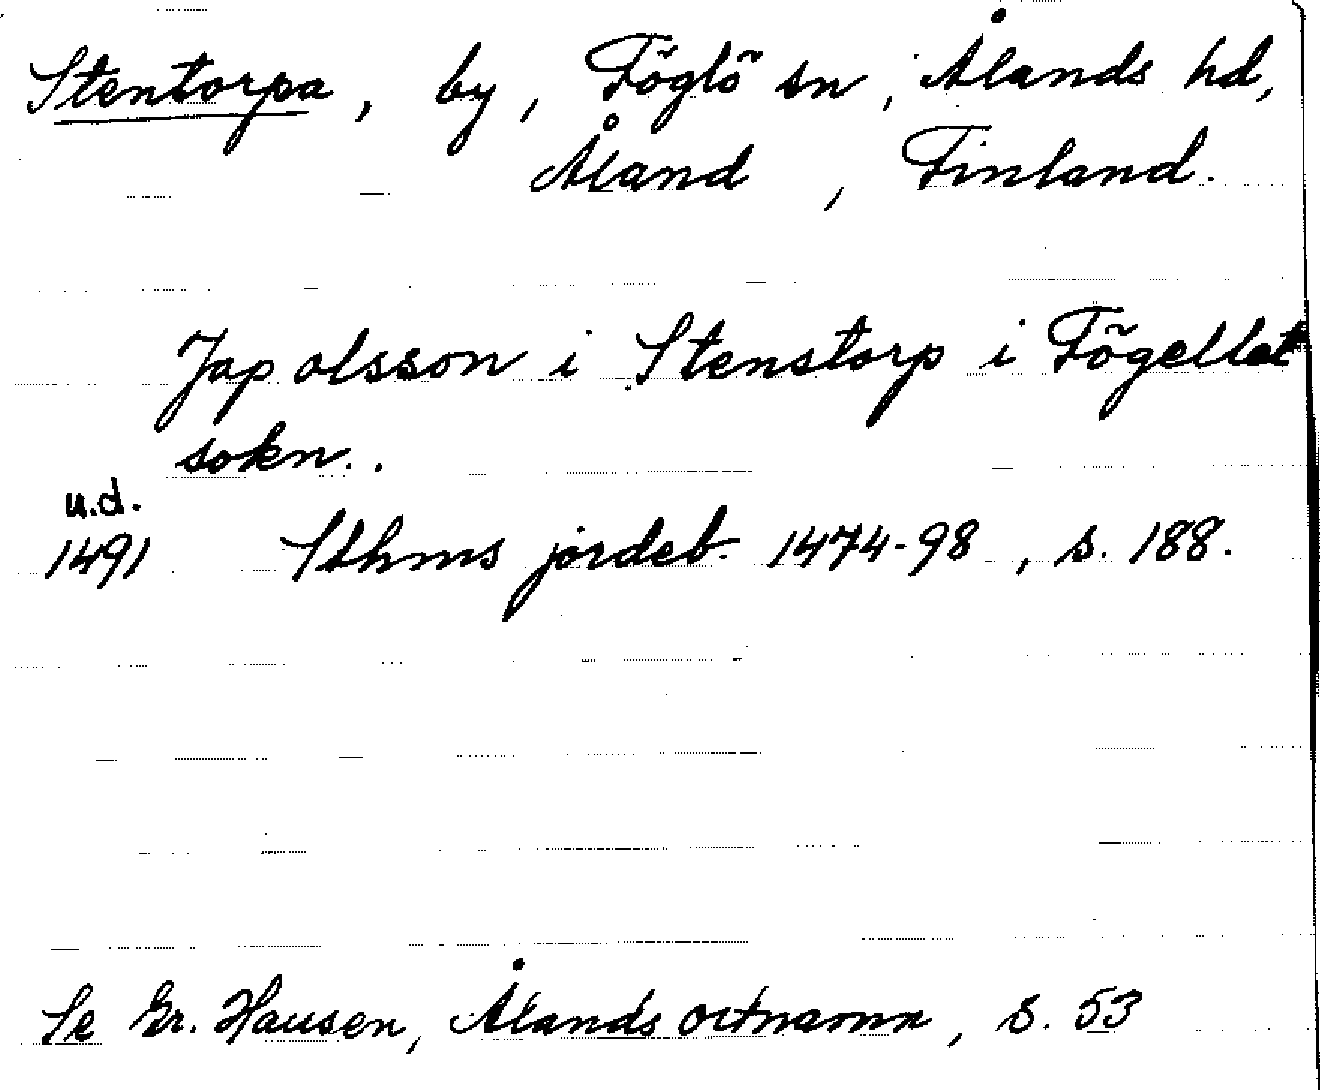 Stentorpa, by, Föglö sn, Ålands hd,
Åland, Finland.
Jap olsson i Stenstorp i Fögellot
sokn..
u.d.
1491 Sthms jordeb. 1474-98, s. 188.
Se Gr. Hausen, Ålands ortnamn, s. 53